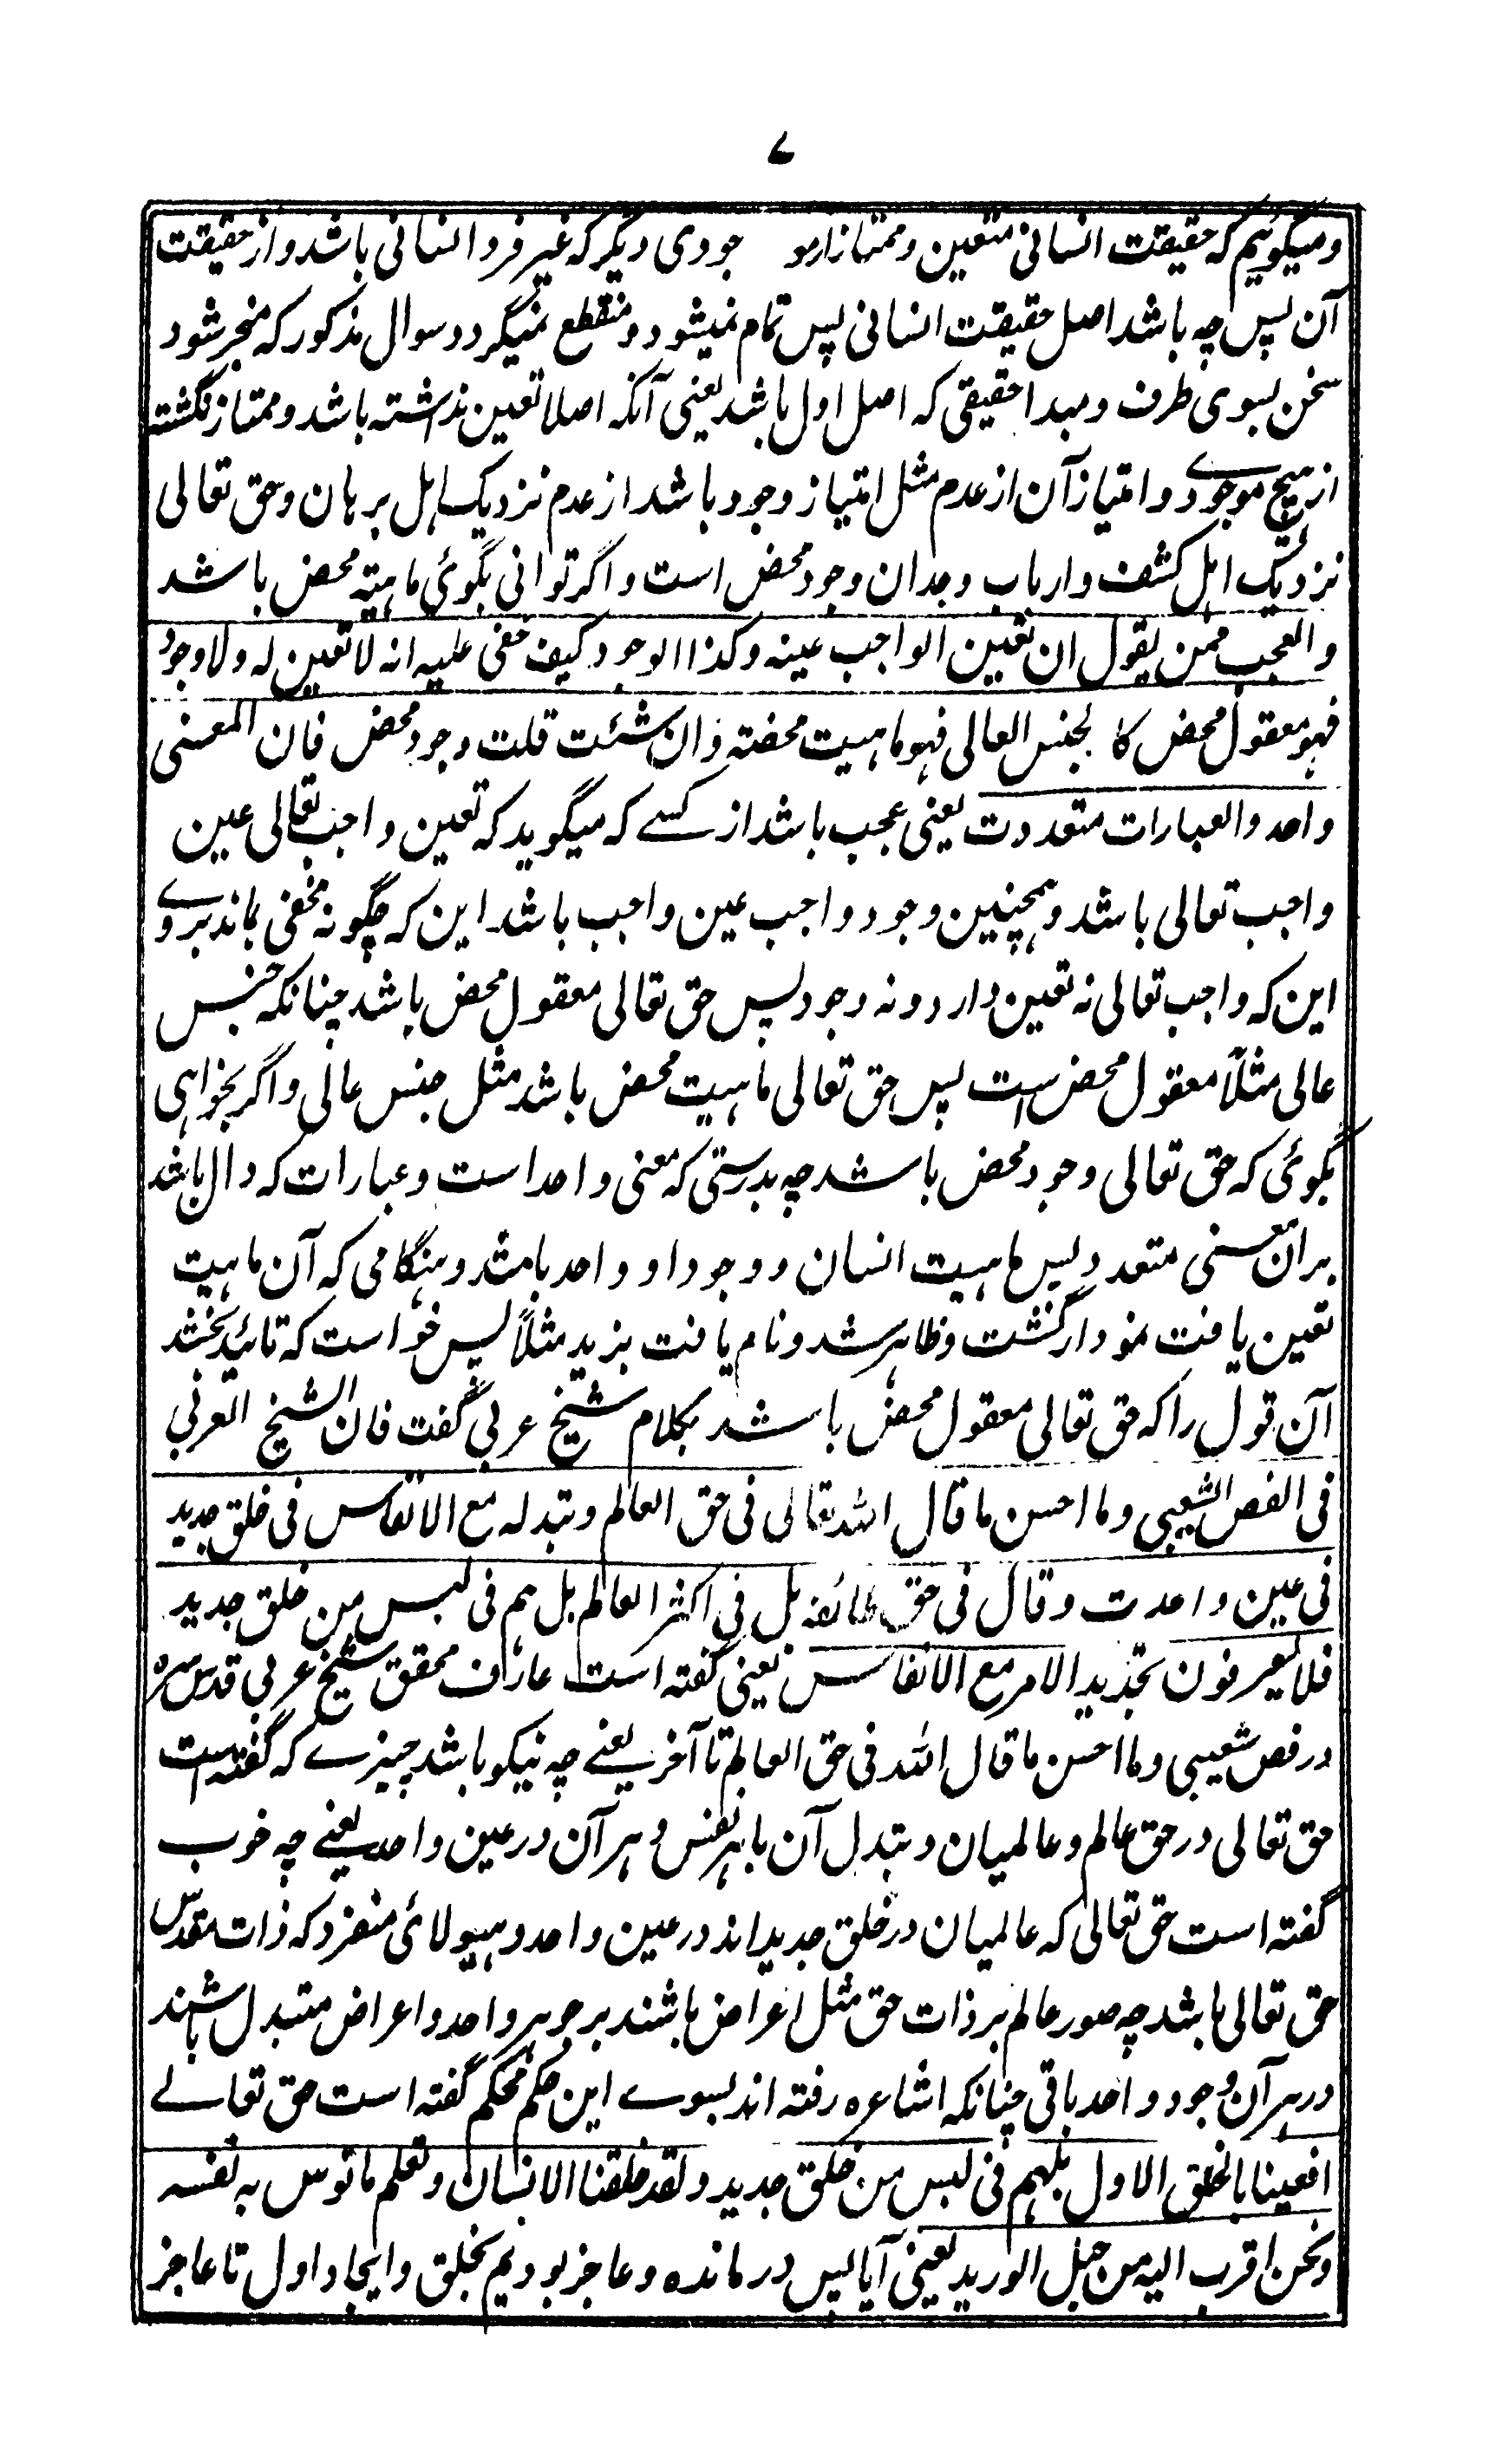 ۷
ومیگوئیم که حقیقت انسانی متعین وممتاز از مو جودی دیگر که غیر فرد انسانی باشد واز حقیقت
آن پس چه باشد اصل حقیقت انسانی پس تمام نمیشود ومنقطع نمیگردد سوال مذکور که منجر شود
سخن بسوی طرف ومبدا حقیقی که اصل اول باشد یعنی آنکه اصلا تعین نداشته باشد وممتاز نگشته
از هیچ موجودے وامتیاز آن از عدم مثل امتیاز وجود باشد از عدم نزدیک اہل برہان وحق تعالی
نزدیک اہل کشف وارباب وجدان وجود محض است واگر توانی بگوئی ماہیتہ محض باشد
والعجب ممن یقول ان تعین الواجب عینہ وکذا الوجود کیف خفی علیہ انہ لا تعین لہ ولا وجود
فہو معقول محض کا لجنس العالی فہو ماہیت محضتہ وان شئت قلت وجود محض فان المعنی
واحد والعبارات متعددت یعنی عجب باشد از کسے که میگوید که تعین واجب تعالی عین
واجب تعالی باشد وہمچنین وجود واجب عین واجب باشد این که چگونه مخفی بماند بروے
این که واجب تعالی نه تعین دارد ونه وجود پس حق تعالی معقول محض باشد چنانکه جنس
عالی مثلاً معقول محض است پس حق تعالی ماہیت محض باشد مثل جنس عالی واگر بخواہی
بگوئی که حق تعالی وجود محض باشد چه بدرستی که معنی واحد است وعبارات که دال باشد
بران معنی متعدد پس ماہیت انسان ووجود او واحد باشد وہنگامی که آن ماہیت
تعین یافت نمودار گشت وظاہر شد ونام یافت بزید مثلاً پس خواست که تائید بخشد
آن قول را که حق تعالی معقول محض باشد بکلام شیخ عربی گفت فان الشیخ العربی
فی الفص الشعیبی وما احسن ما قال اللہ تعالی فی حق العالم وتبدلہ مع الانفاس فی خلق جدید
فی عین واحدت وقال فی حق طائفہ بل فی اکثر العالم بل ہم فی لبس من خلق جدید
فلا یعرفون تجدید الامر مع الانفاس یعنی گفته است عارف محقق شیخ عربی قدس سرہ
در فص شعیبی وما احسن ما قال اللہ فی حق العالم تا آخر یعنے چه نیکو باشد چیزے که گفته است
حق تعالی در حق عالم وعالمیان وتبدل آن با ہر نفس وہر آن در عین واحد یعنے چه خوب
گفته است حق تعالی که عالمیان در خلق جدید اند در عین واحد وہیولائی منفرد که ذات مقدس
حق تعالی باشد چه صور عالم بر ذات حق مثل اعراض باشند بر جوہر واحد واعراض متبدل باشند
در ہر آن وجود واحد باقی چنانکه اشاعرہ رفته اند بسوے این حکم محکم گفته است حق تعالے
افعینا بالخلق الاول بل ہم فی لبس من خلق جدید ولقد خلقنا الانسان ونعلم ما توسوس بہ نفسہ
ونحن اقرب الیہ من حبل الورید یعنی آیا پس درمانده وعاجز بودیم بخلق وایجاد اول تا عاجز